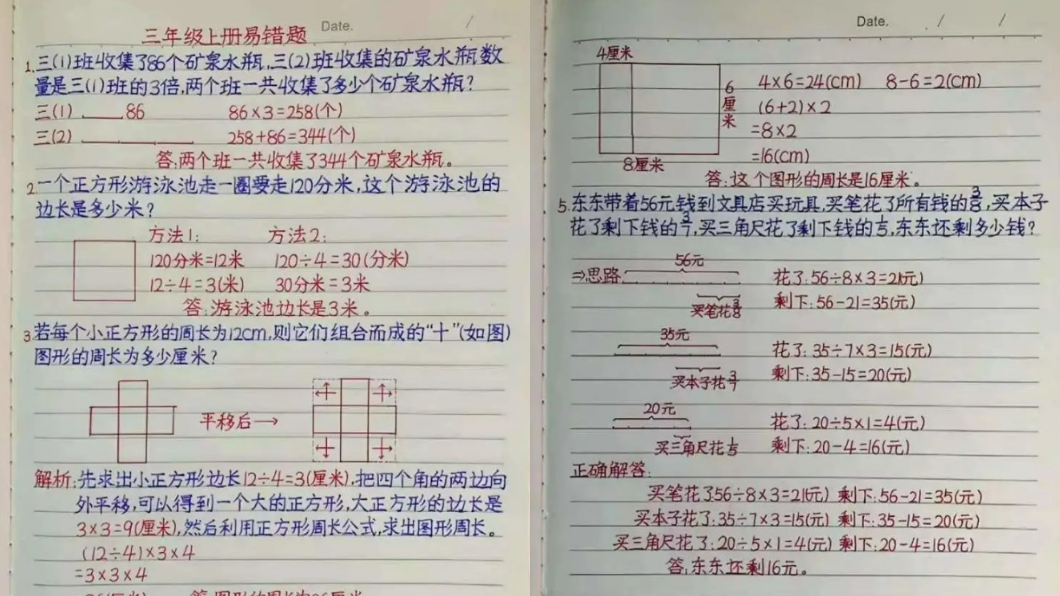 Date.
三年级上册易错题
1.三(1)班收集了86个矿泉水瓶,三(2)班收集的矿泉水瓶数
量是三(1)班的3倍,两个班一共收集了多少个矿泉水瓶?
三(1) 86 86×3=258(个)
三(2) 258+86=344(个)
答:两个班一共收集了344个矿泉水瓶。
2.一个正方形游泳池走一圈要走120分米,这个游泳池的
边长是多少米?
方法1: 方法2:
120分米=12米 120÷4=30(分米)
12÷4=3(米) 30分米=3米
答:游泳池边长是3米。
3.若每个小正方形的周长为12cm,则它们组合而成的“十”(如图)
图形的周长为多少厘米?
平移后→
解析:先求出小正方形边长12÷4=3(厘米),把四个角的两边向
外平移,可以得到一个大的正方形,大正方形的边长是
3×3=9(厘米),然后利用正方形周长公式,求出图形周长。
(12÷4)×3×4
=3×3×4
Date. / /
4厘米
6厘米
8厘米
4×6=24(cm) 8-6=2(cm)
(6+2)×2
=8×2
=16(cm)
答:这个图形的周长是16厘米。
5.东东带着56元钱到文具店买玩具,买笔花了所有钱的3/8,买本子
花了剩下钱的3/7,买三角尺花了剩下钱的1/5,东东还剩多少钱?
⇒思路: 56元 花了:56÷8×3=21(元)
买笔花3/8 剩下:56-21=35(元)
35元 花了:35÷7×3=15(元)
买本子花3/7 剩下:35-15=20(元)
20元 花了:20÷5×1=4(元)
买三角尺花1/5 剩下:20-4=16(元)
正确解答:
买笔花了56÷8×3=21(元) 剩下:56-21=35(元)
买本子花了:35÷7×3=15(元) 剩下:35-15=20(元)
买三角尺花了:20÷5×1=4(元) 剩下:20-4=16(元)
答:东东还剩16元。